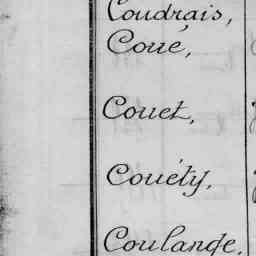 Coudrais,
Coué,
Couet,
Couéty,
Coulange,